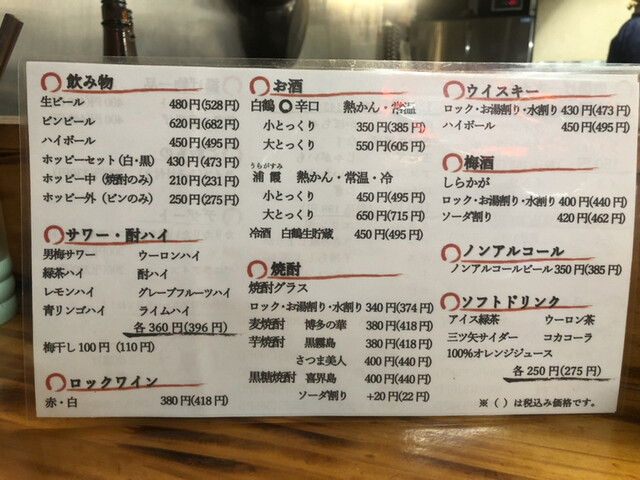 飲み物
生ビール 480円(528円)
ビンビール 620円(682円)
ハイボール 450円(495円)
ホッピーセット(白・黒) 430円(473円)
ホッピー中(焼酎のみ) 210円(231円)
ホッピー外(ビンのみ) 250円(275円)
サワー・酎ハイ
男梅サワー ウーロンハイ
緑茶ハイ 酎ハイ
レモンハイ グレープフルーツハイ
青リンゴハイ ライムハイ
各360円(396円)
梅干し100円(110円)
ロックワイン
赤・白 380円(418円)
お酒
白鶴 辛口 熱かん・常温
小とっくり 350円(385円)
大とっくり 550円(605円)
うちがすみ
浦霞 熱かん・常温・冷
小とっくり 450円(495円)
大とっくり 650円(715円)
冷酒 白鶴生貯蔵 450円(495円)
焼酎
焼酎グラス
ロック・お湯割り・水割り 340円(374円)
麦焼酎 博多の華 380円(418円)
芋焼酎 黒霧島 380円(418円)
さつま美人 400円(440円)
黒糖焼酎 喜界島 400円(440円)
ソーダ割り +20円(22円)
ウイスキー
ロック・お湯割り・水割り 430円(473円)
ハイボール 450円(495円)
梅酒
しらかが
ロック・お湯割り・水割り 400円(440円)
ソーダ割り 420円(462円)
ノンアルコール
ノンアルコールビール 350円(385円)
ソフトドリンク
アイス緑茶 ウーロン茶
三ツ矢サイダー コカコーラ
100%オレンジジュース
各250円(275円)
※( )は税込み価格です。